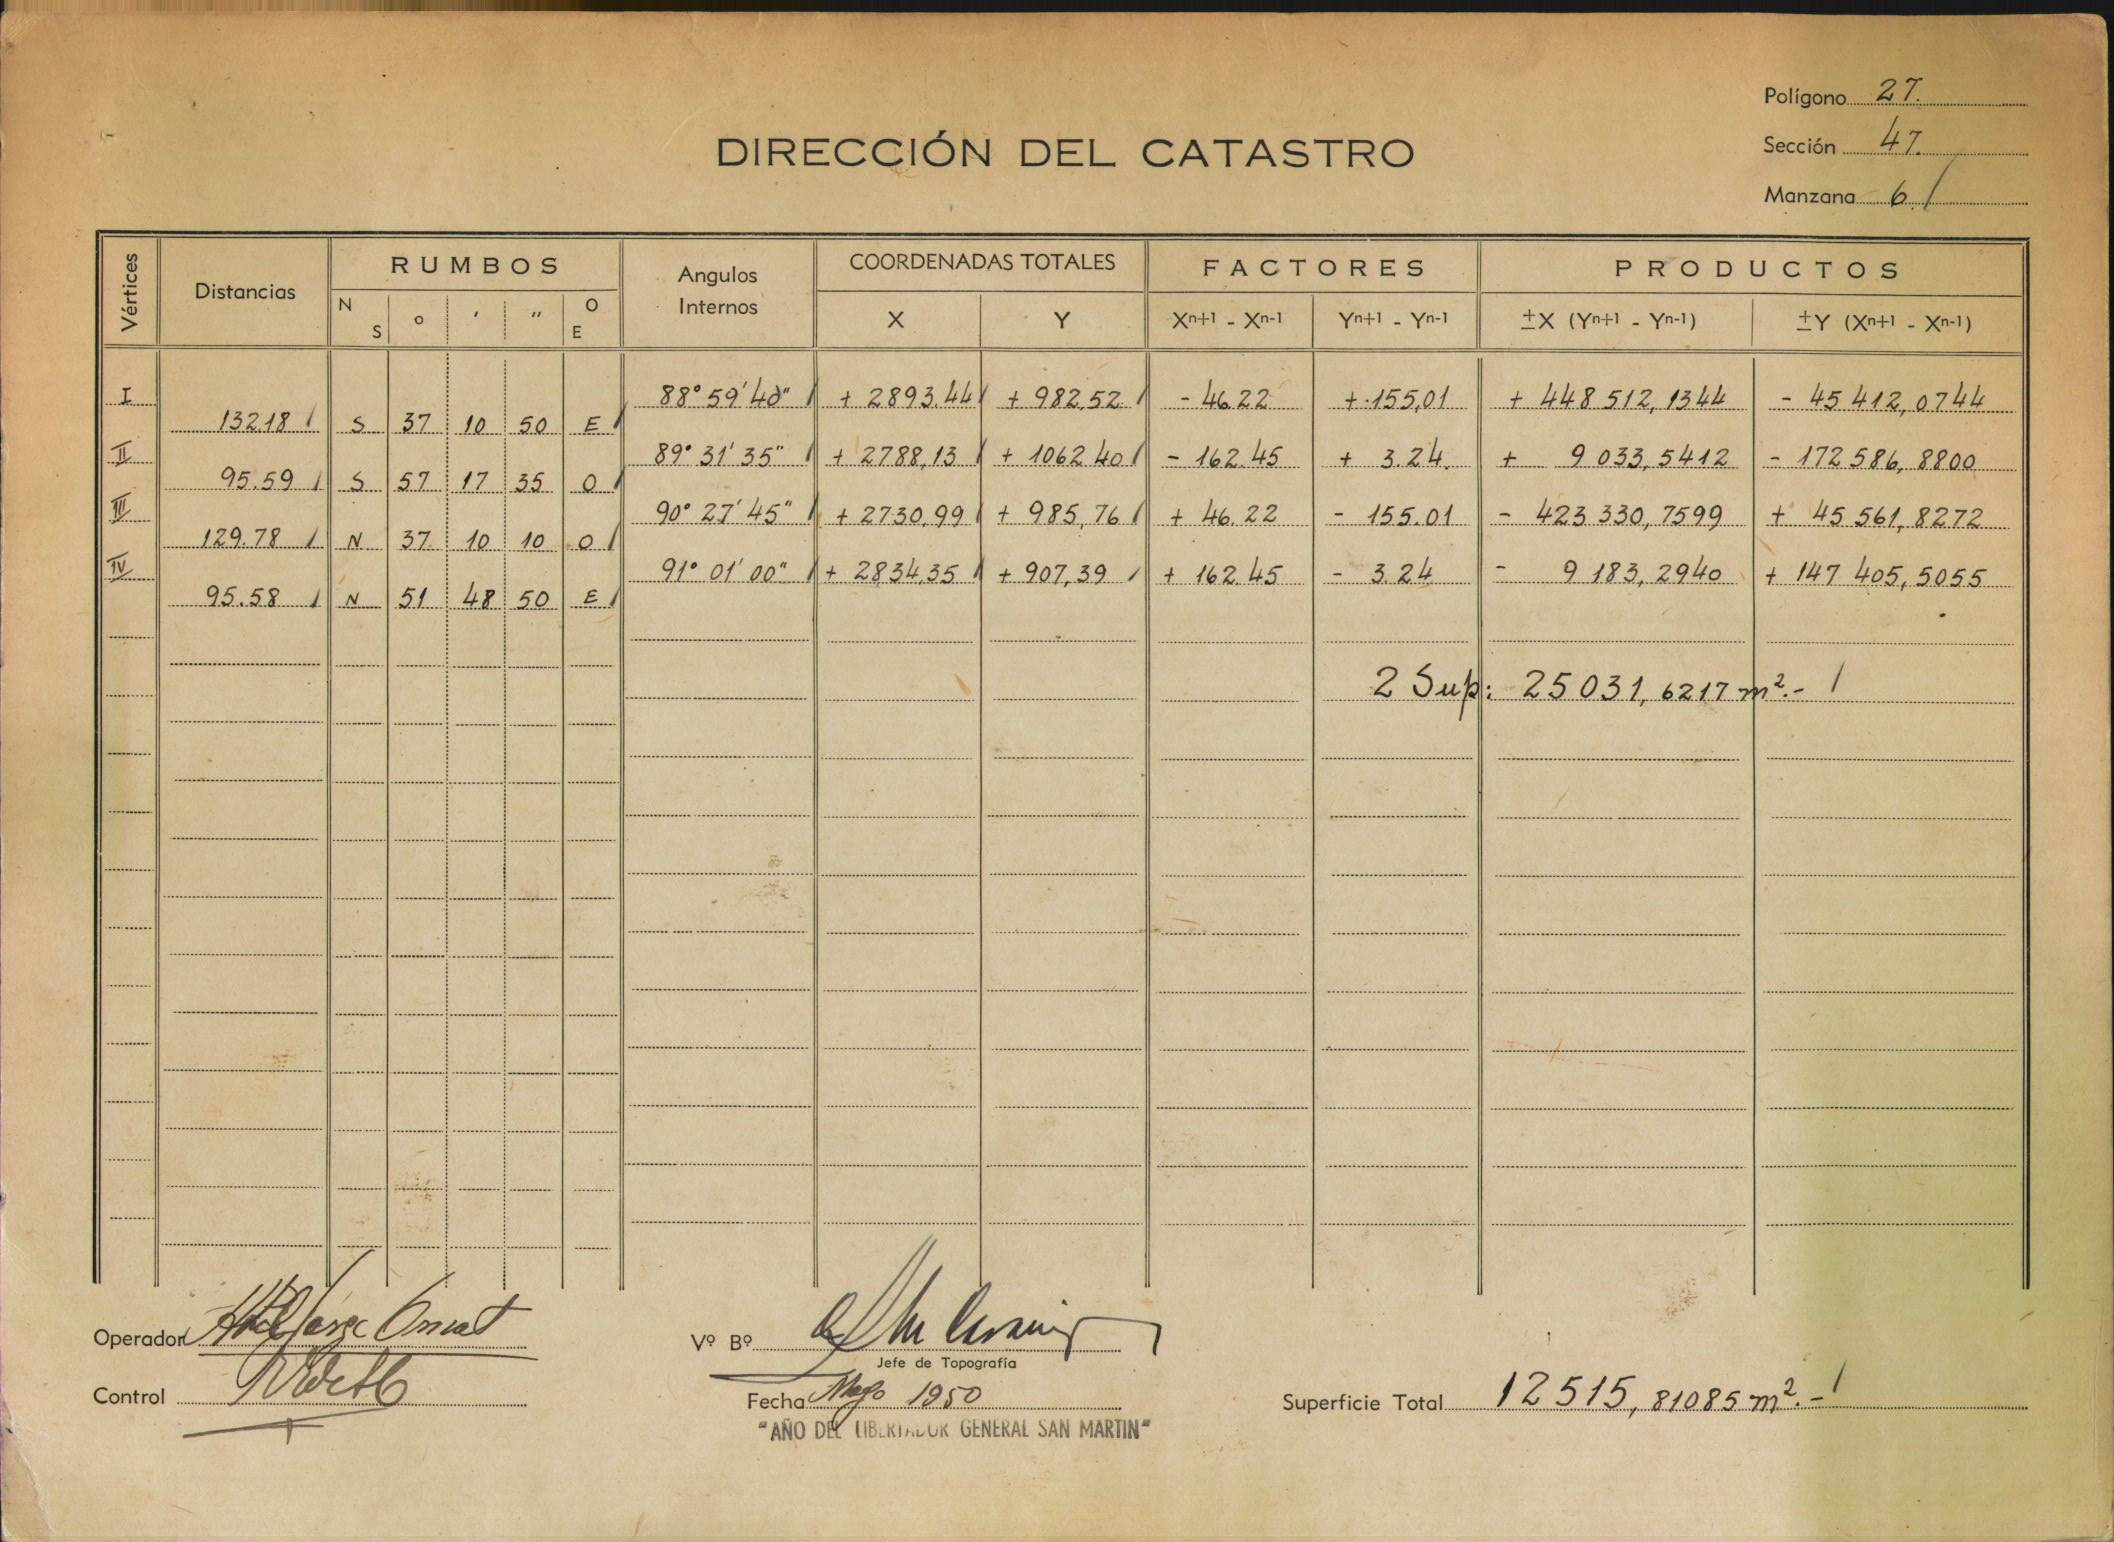 Polígono 27.
Sección 47.
Manzana 6.
DIRECCIÓN DEL CATASTRO
Vértices Distancias RUMBOS Angulos Internos COORDENADAS TOTALES FACTORES PRODUCTOS
N S o ' " O E X Y Xn+1 - Xn-1 Yn+1 - Yn-1 ±X (Yn+1 - Yn-1) ±Y (Xn+1 - Xn-1)
I 88° 59' 40" + 2893.44 + 982,52 - 46.22 + 155,01 + 448 512,1344 - 45 412,0744
132.18 S 37 10 50 E
II 89° 31' 35" + 2788,13 + 1062.40 - 162.45 + 3.24. + 9 033,5412 - 172 586,8800
95.59 S 57 17 35 O
III 90° 27' 45" + 2730,99 + 985,76 + 46.22 - 155.01 - 423 330,7599 + 45 561,8272
129.78 N 37 10 10 O
IV 91° 01' 00" + 2834,35 + 907,39 + 162.45 - 3.24 - 9 183,2940 + 147 405,5055
95.58 N 51 48 50 E
2 Sup: 25031,6217 m².-
Operador
Vº Bº
Jefe de Topografía
Control
Fecha Mayo 1950
Superficie Total 12515,81085 m².-
"AÑO DEL LIBERTADOR GENERAL SAN MARTIN"